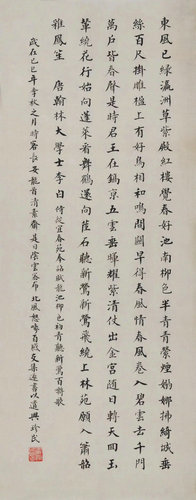 東風已綠瀛洲草紫殿紅樓覺春好池南柳色半青青縈煙嫋娜拂綺城垂
絲百尺掛雕楹上有好鳥相和鳴間關早得春風情春風卷入碧雲去千門
萬戶皆春聲是時君王在鎬京五雲垂暉耀紫清仗出金宮隨日轉天回玉
輦繞花行始向蓬萊看舞鶴還向茝石聽新鶯新鶯飛繞上林苑願入簫韶
雜鳳笙 唐翰林大學士李白 侍從宜春苑奉詔賦龍池柳色初青聽新鶯百囀歌
歲在己巳年季秋之月時客長安龍首清素齋是日陰雲密布北風怒嚎百感交集遂書以遣興